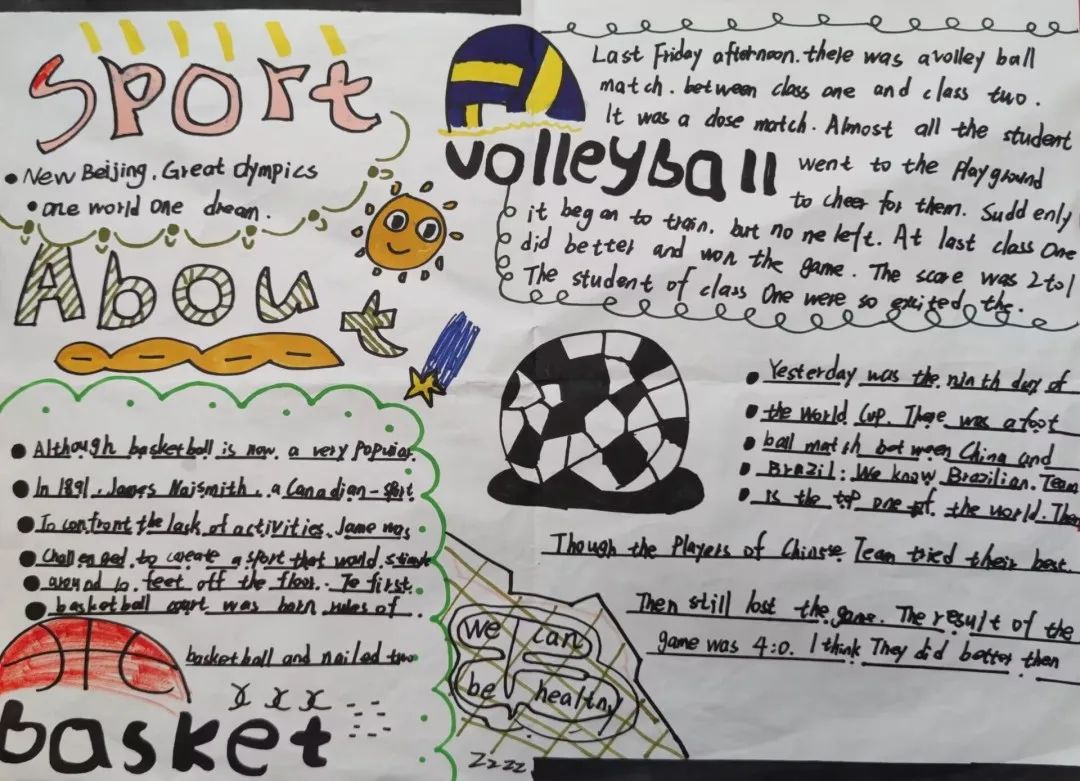 Sport
New Beijing. Great Olympics
one world One dream.
About
Last Friday afternoon. there was a volley ball
match. between class one and class two.
It was a close match. Almost all the student
volleyball
went to the playground
to cheer for them. Suddenly
it began to train. but no ne left. At last class One
did better and won the game. The score was 2 to 1
The student of class One were so excited the.
Although basketball is now a very Popular
In 1891. James Naismith. a Canadian-sport
To confront the lack of activities. Jame was
Challenged to create a sport that would
around 10 feet off the floor. To first.
basketball court was born rules of
basketball and nailed two
xxx
basket
Yesterday was the ninth day of
the world Cup. There was a foot
ball match between China and
Brazil: We know Brazilian. Team
is the top one of. the world. Then
Though the Players of Chinese Team tried their best.
Then still lost the game. The result of the
game was 4:0. I think They did better then
we can
be healthy
Zzzz